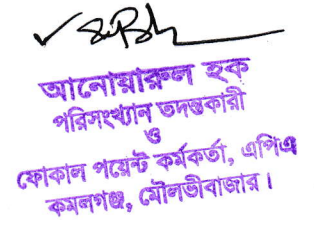 আনোয়ারুল হক
পরিসংখ্যান তদন্তকারী
ও
ফোকাল পয়েন্ট কর্মকর্তা, এপিএ
কমলগঞ্জ, মৌলভীবাজার।